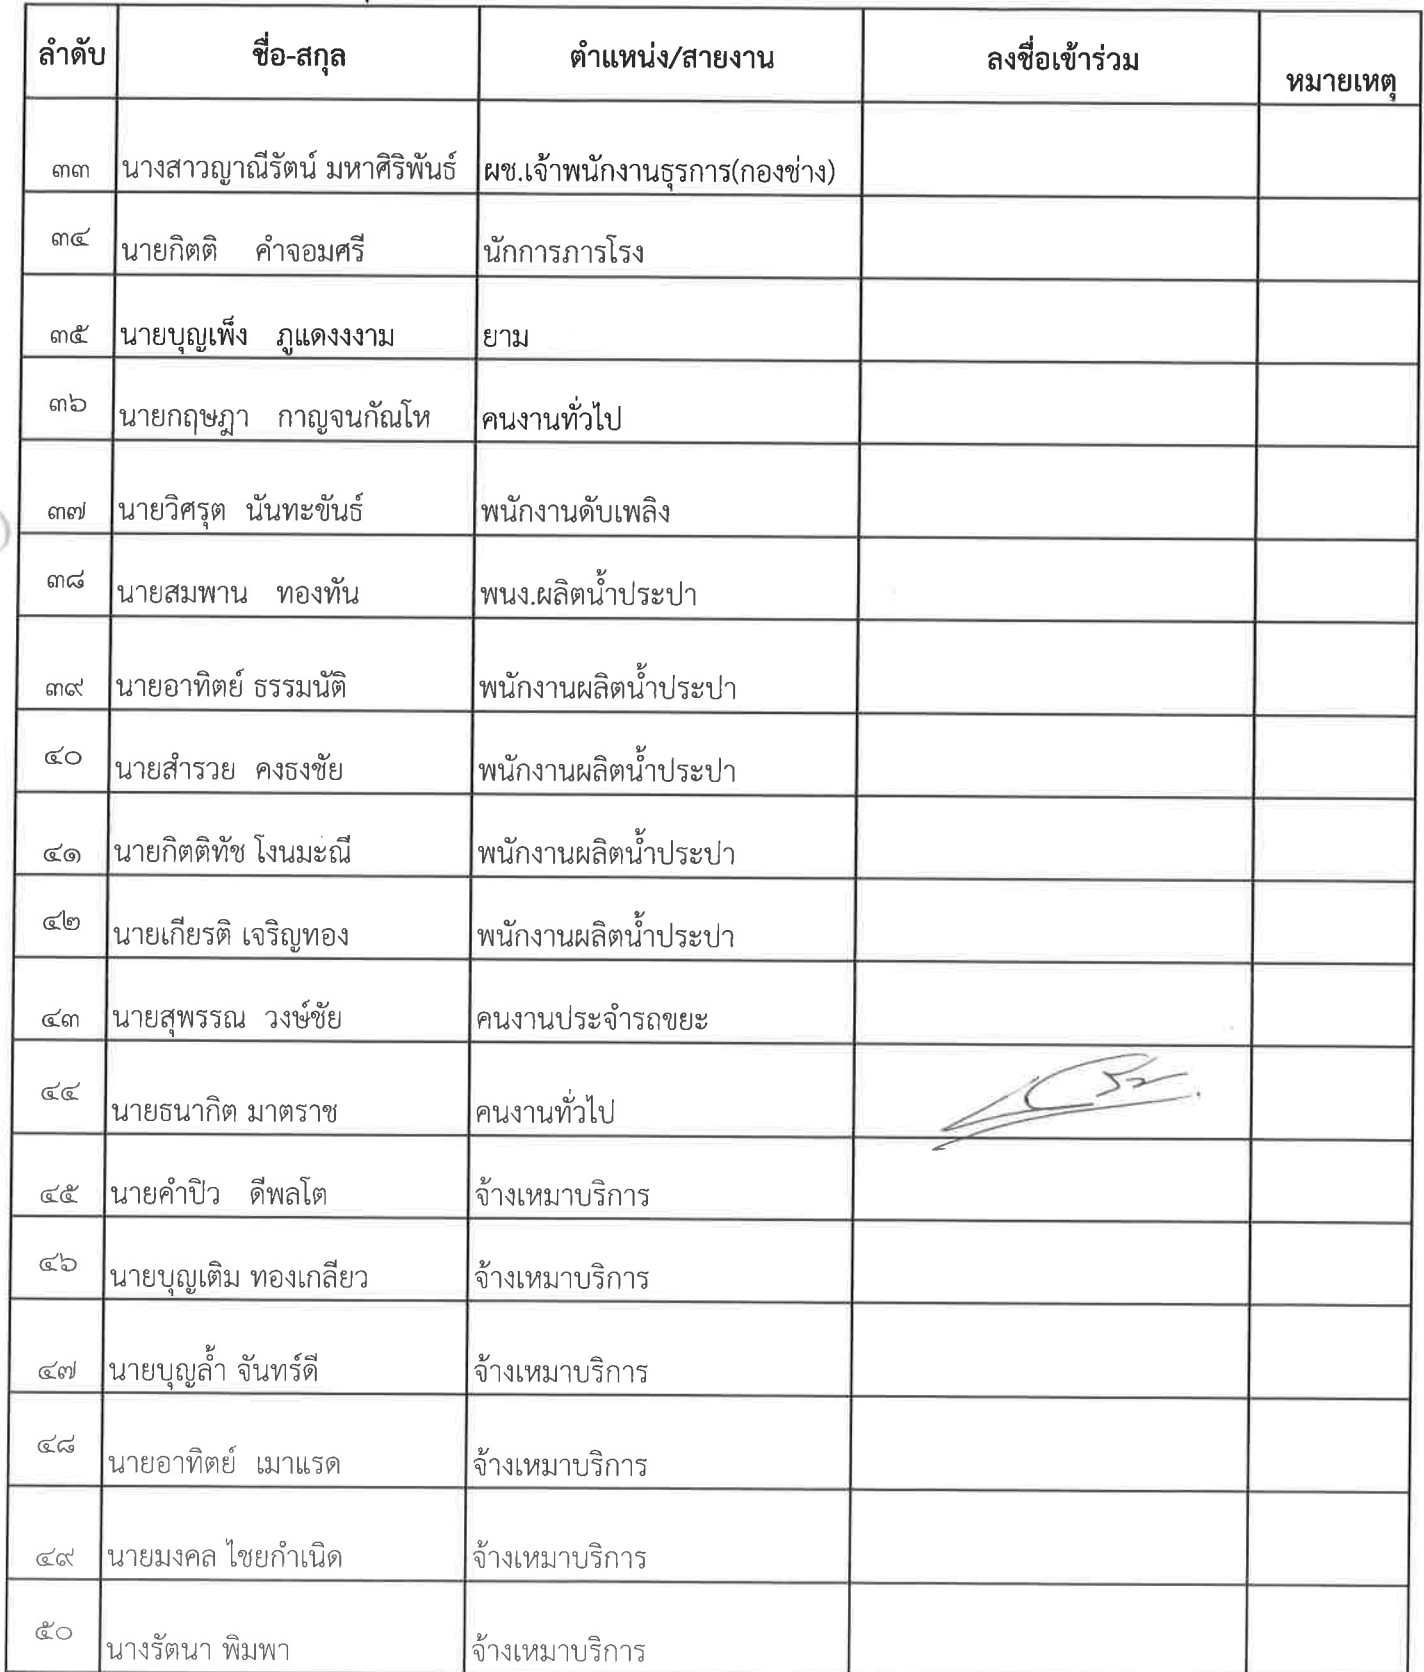 ลำดับ ชื่อ-สกุล ตำแหน่ง/สายงาน ลงชื่อเข้าร่วม หมายเหตุ
๓๓ นางสาวญาณีรัตน์ มหาศิริพันธ์ ผช.เจ้าพนักงานธุรการ(กองช่าง)
๓๔ นายกิตติ คำจอมศรี นักการภารโรง
๓๕ นายบุญเพ็ง ภูแดงงงาม ยาม
๓๖ นายกฤษฎา กาญจนกัณโห คนงานทั่วไป
๓๗ นายวิศรุต นันทะขันธ์ พนักงานดับเพลิง
๓๘ นายสมพาน ทองทัน พนง.ผลิตน้ำประปา
๓๙ นายอาทิตย์ ธรรมนัติ พนักงานผลิตน้ำประปา
๔๐ นายสำรวย คงธงชัย พนักงานผลิตน้ำประปา
๔๑ นายกิตติทัช โงนมะณี พนักงานผลิตน้ำประปา
๔๒ นายเกียรติ เจริญทอง พนักงานผลิตน้ำประปา
๔๓ นายสุพรรณ วงษ์ชัย คนงานประจำรถขยะ
๔๔ นายธนากิต มาตราช คนงานทั่วไป
๔๕ นายคำปิว ดีพลโต จ้างเหมาบริการ
๔๖ นายบุญเติม ทองเกลียว จ้างเหมาบริการ
๔๗ นายบุญล้ำ จันทร์ดี จ้างเหมาบริการ
๔๘ นายอาทิตย์ เมาแรด จ้างเหมาบริการ
๔๙ นายมงคล ไชยกำเนิด จ้างเหมาบริการ
๕๐ นางรัตนา พิมพา จ้างเหมาบริการ